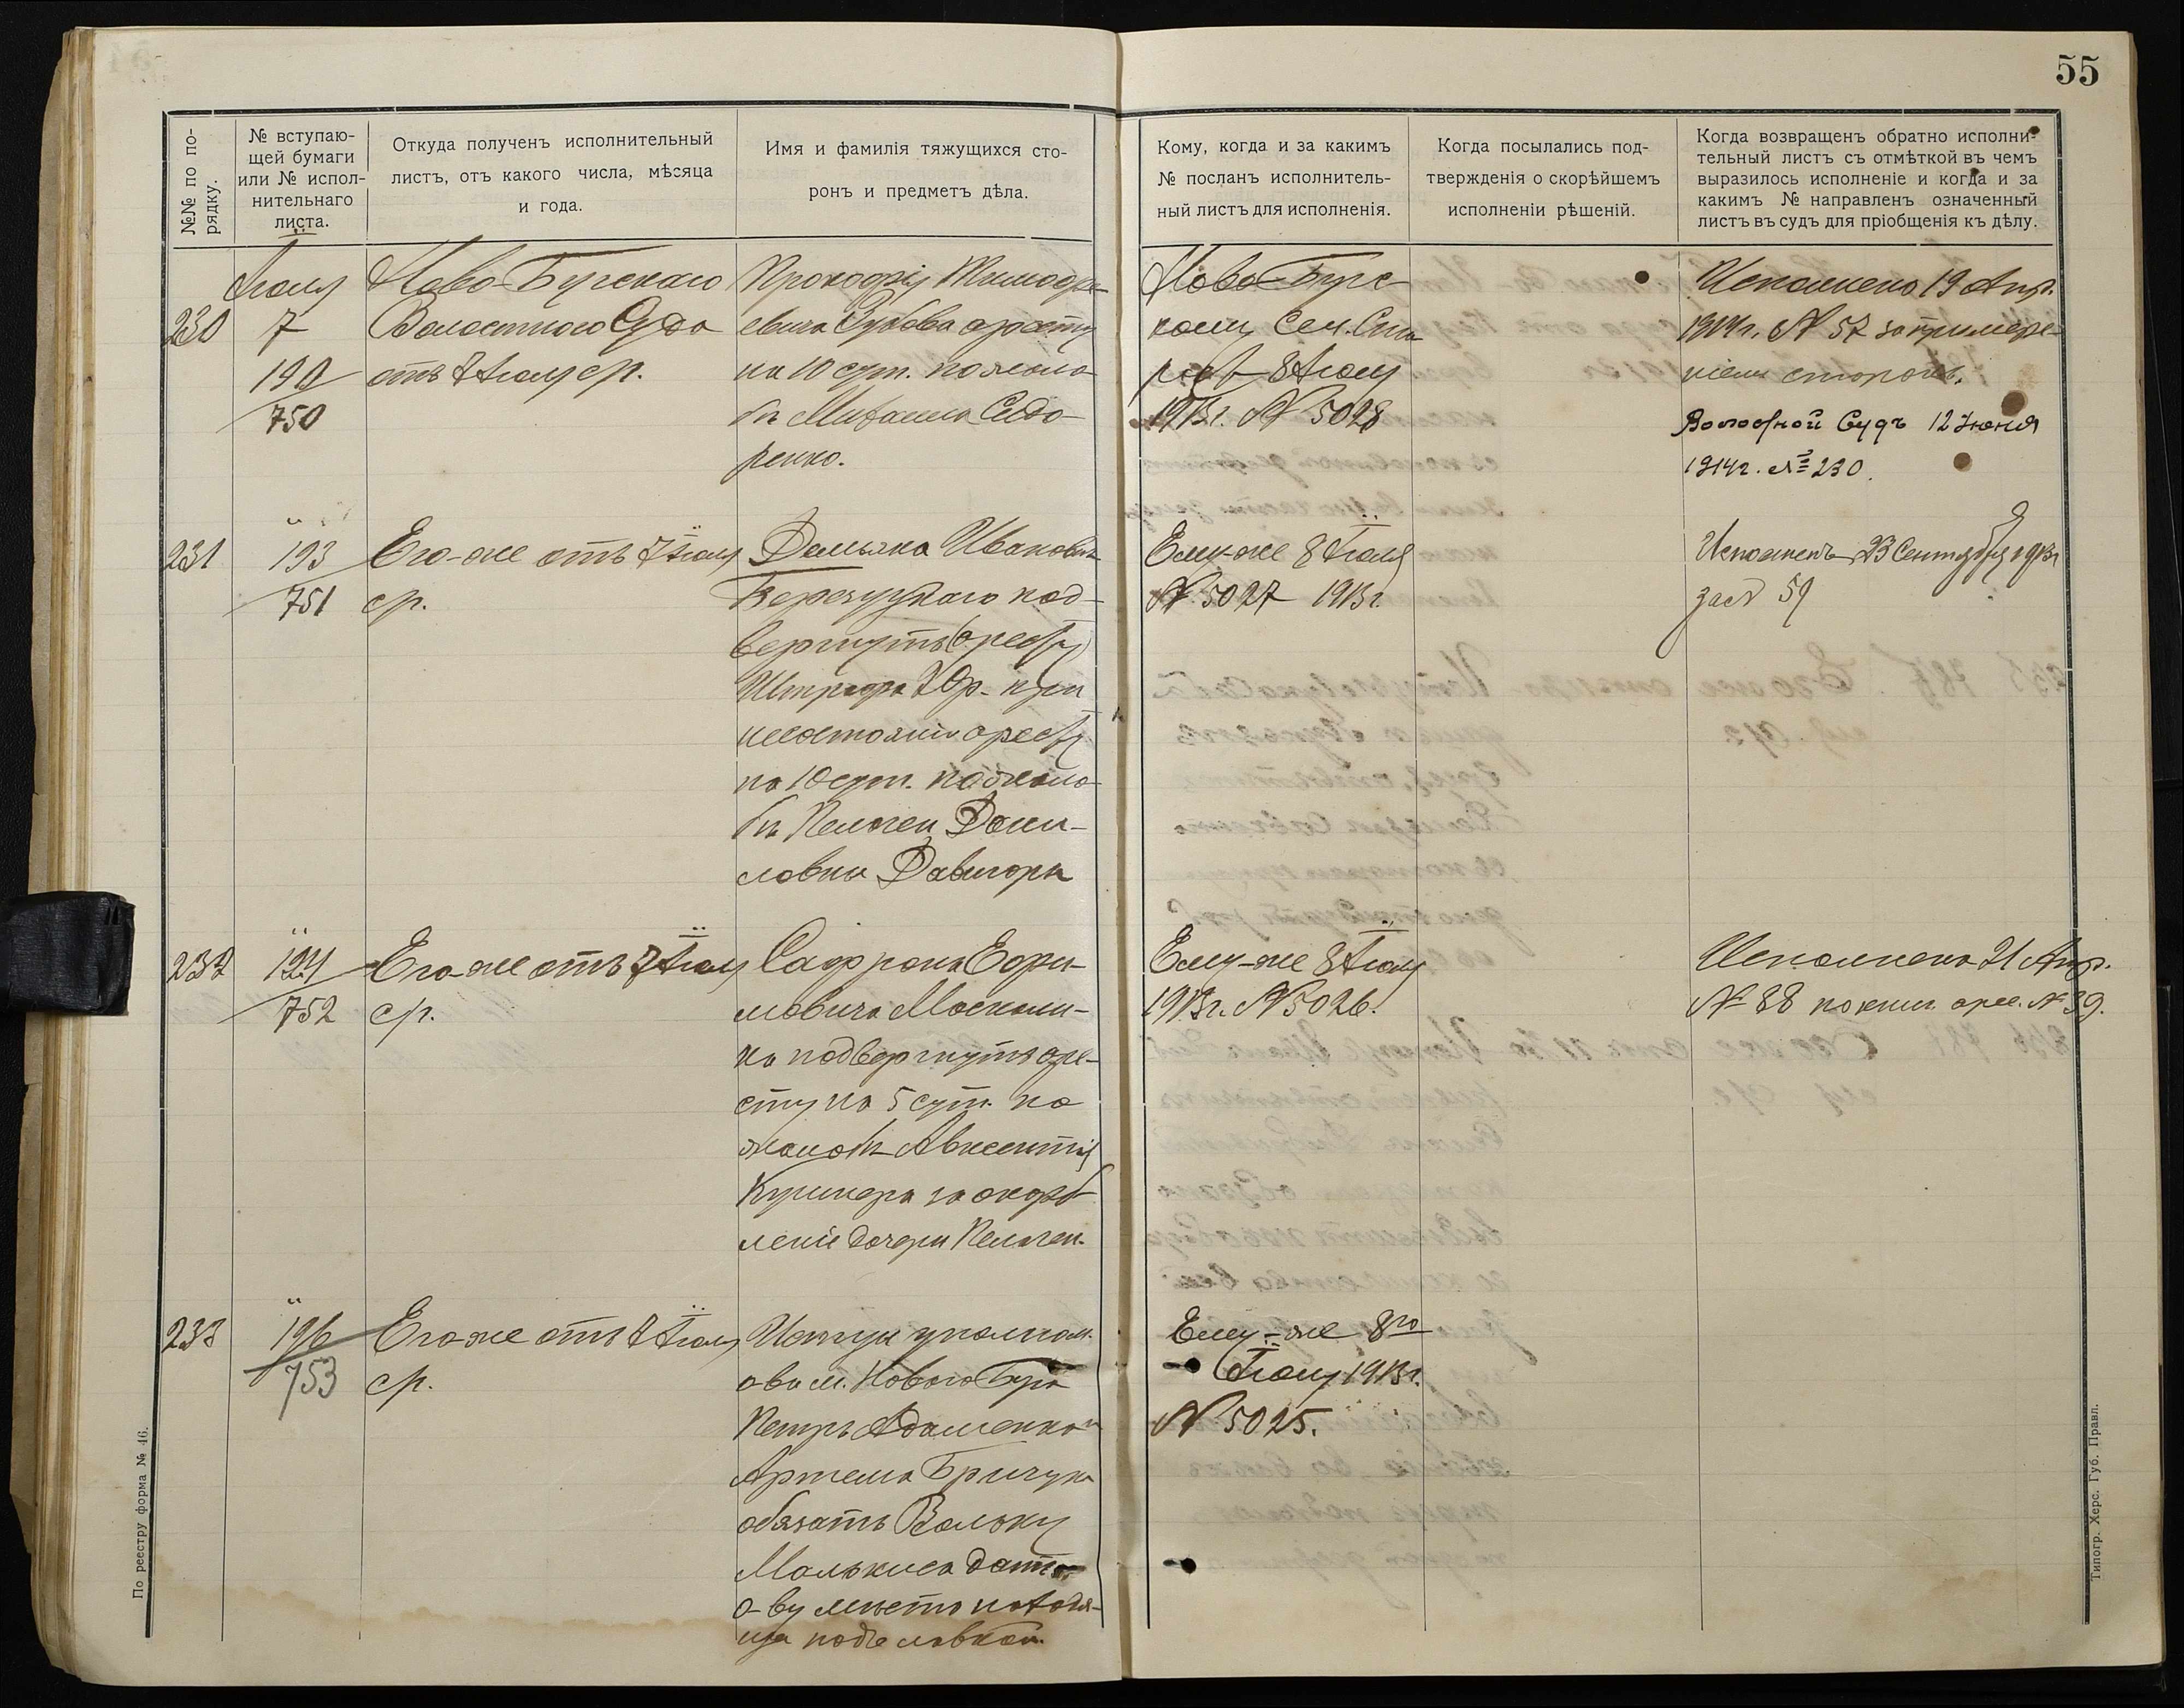 55
№№ по по-
рядку.
№ вступаю-
щей бумаги
или № испол-
нительнаго
листа.
Откуда полученъ исполнительный
листъ, отъ какого числа, мѣсяца
и года.
Имя и фамилія тяжущихся сто-
ронъ и предметъ дѣла.
Кому, когда и за какимъ
№ посланъ исполнитель-
ный листъ для исполненія.
Когда посылались под-
твержденія о скорѣйшемъ
исполненіи рѣшеній.
Когда возвращенъ обратно исполни-
тельный листъ съ отмѣткой въ чемъ
выразилось исполненіе и когда и за
какимъ № направленъ означенный
листъ въ судъ для пріобщенія къ дѣлу.
230
Іюля
7
750
Ново-Бугскаго
Волостного Суда
отъ 7 Іюля с/г.
Прокофія Тимофе-
евича аресту
на 10 сут. по жало-
бѣ Михаила Сидо-
ренко.
Ново-Бугс-
кому Сел. Ста
рость 8 Іюля
1913г. № 5028
Исполнено 19 Апр.
1914г. № 57 за примире-
ніемъ сторонъ.
Волостной Судъ 12 Іюня
1914г. № 230.
231
193
751
Его-же отъ 7 Іюля
с/г.
Демьяна Иванов
под-
вергнуть аресту
Штрафа р. при
несостоян. аресту
на 10 сут. по жало-
бѣ Пелагеи Дани-
ловны
Ему-же 8 Іюля
№ 5027 1913г.
Исполненъ 23 Сентября 1913г
за № 59
232
194
752
Его-же отъ 7 Іюля
с/г.
Сафрона Ефи-
мовича Москали-
ка подвергнуть аре-
сту на 5 сут. по
жалобѣ Авксентія
за оскорб-
леніе дочери Пелагеи.
Ему-же 8 Іюля
1913г. № 5026.
Исполнено 21 Апр.
№ 88 по книг. арес. № 39.
233
196
753
Его-же отъ 7 Іюля
с/г.
Истцы уполном.
о-ва м. Новаго Буга
Петръ Адаменко и
Артема Бричука
обязать Вольку
Малькиса дать
о-ву мѣсто находя-
ща подъ лавкой.
Ему-же 8го
Іюля 1913г.
№ 5025.
По реестру форма № 46.
Типогр. Херс. Губ. Правл.